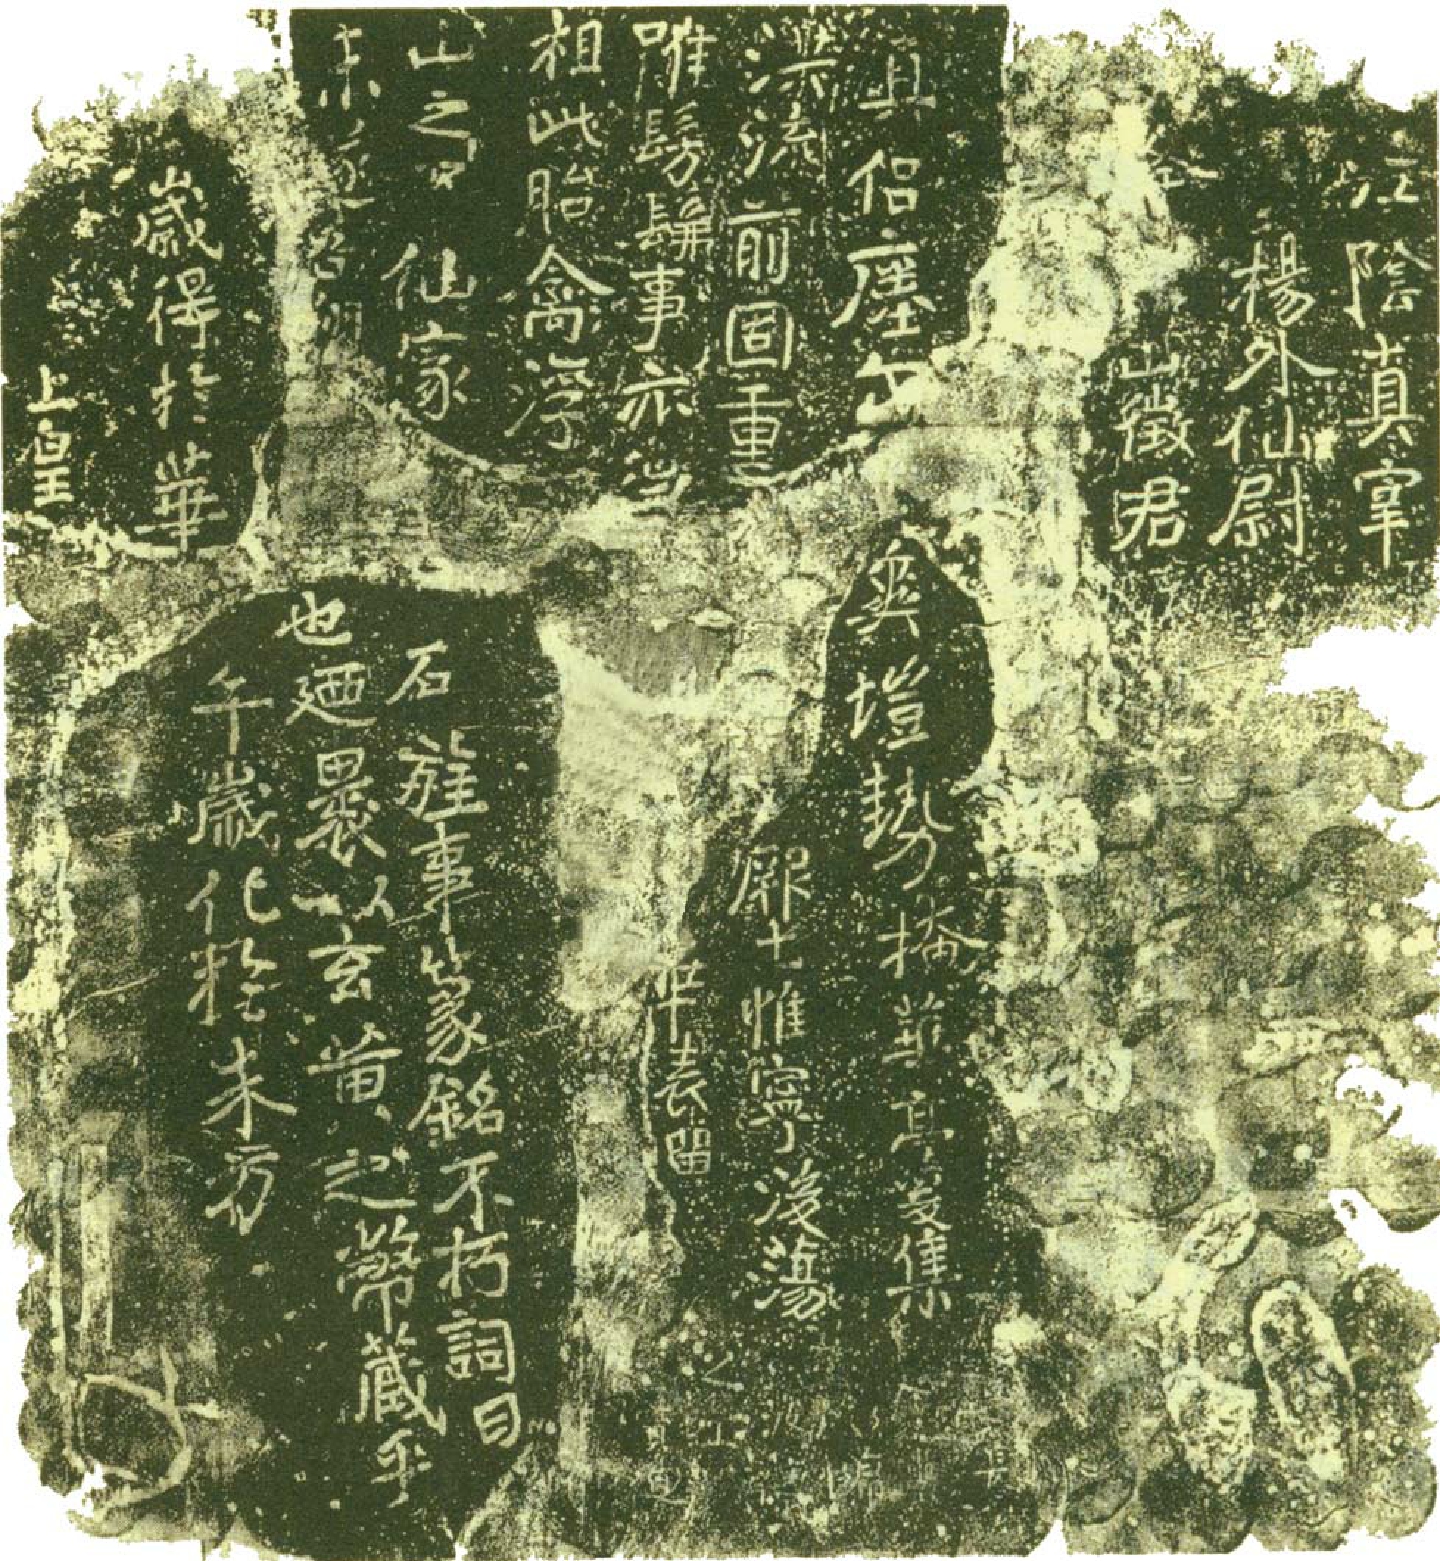 上皇
歲得於華 午歲化於朱方
未遂吾翔 也迺裹以玄黃之幣藏乎
山之下仙家 石旌事篆銘不朽詞曰
相此胎禽浮
唯髣髴事亦 華表留
洪流前固重 厥土惟寧後蕩
真侶瘞爾 爽塏勢掩華亭爰集
山徵君
楊外仙尉
江陰真宰